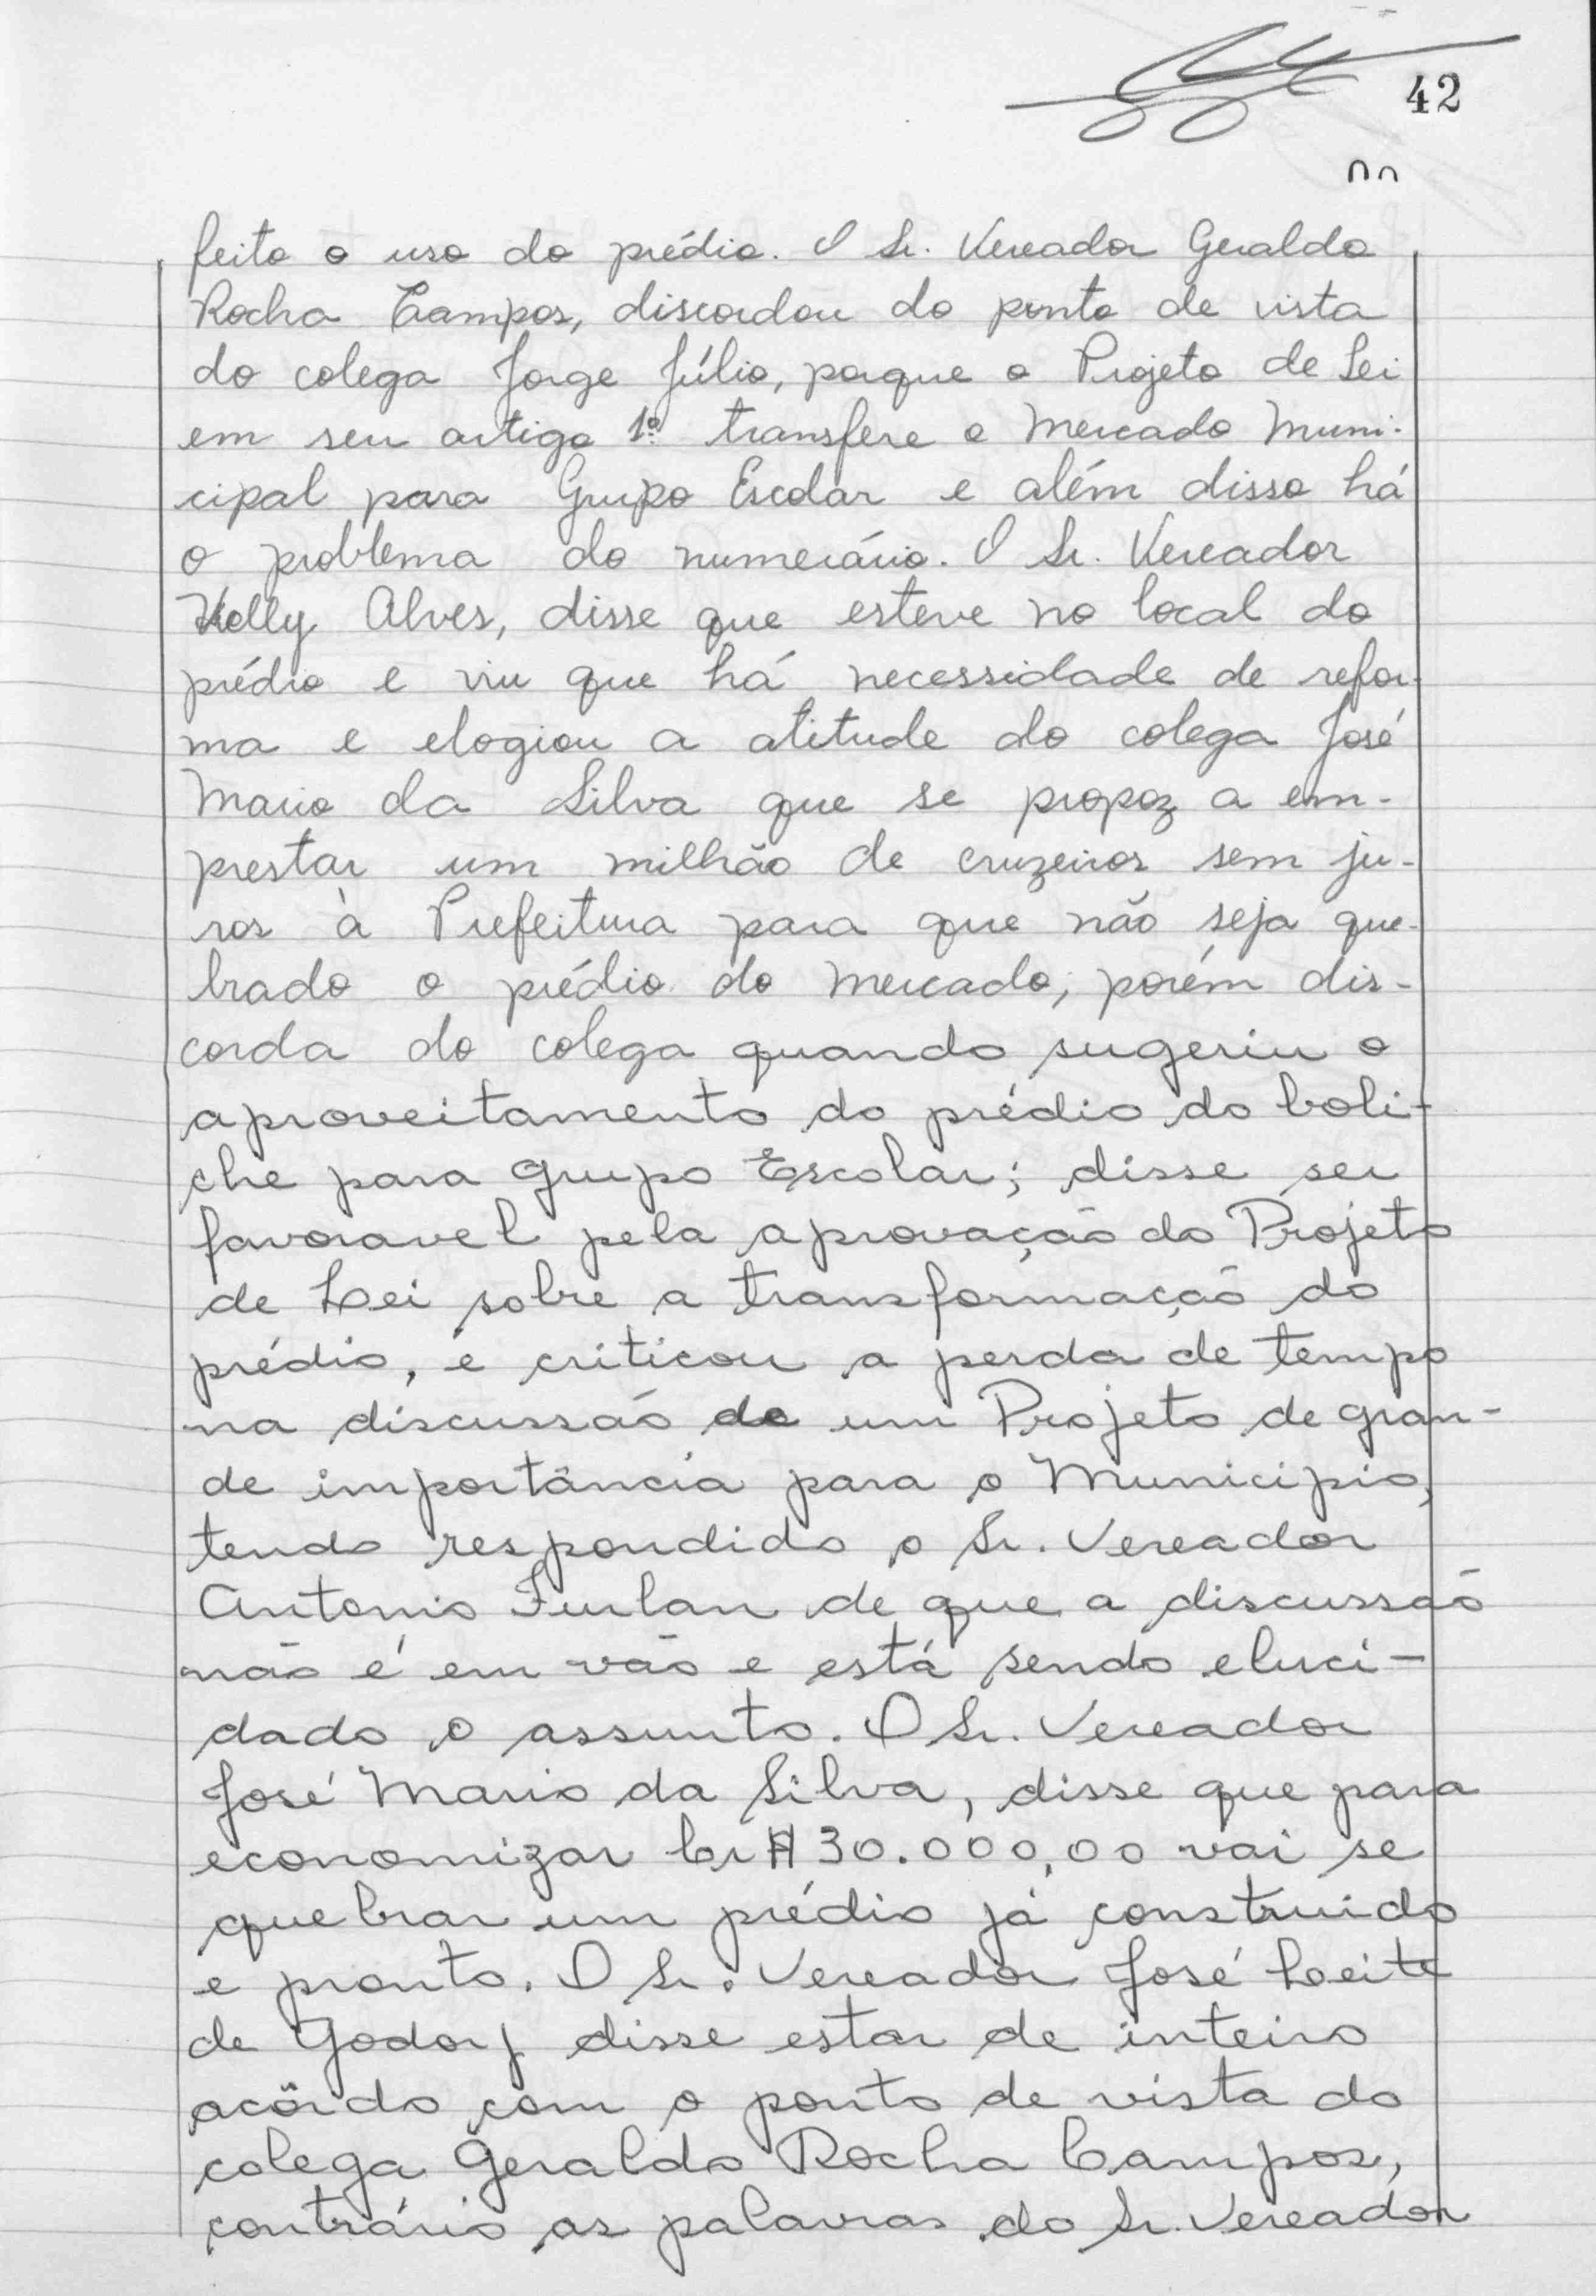 42
feito o uso do prédio. O Sr. Vereador Geraldo
Rocha Campos, discordou do ponto de vista
do colega Jorge Júlio, porque o Projeto de Lei
em seu artigo 1º transfere o Mercado Muni-
cipal para Grupo Escolar e além disso há
o problema do numerário. O Sr. Vereador
Kelly Alves, disse que esteve no local do
prédio e viu que há necessidade de refor-
ma e elogiou a atitude do colega José
Mario da Silva que se propoz a em-
prestar um milhão de cruzeiros sem ju-
ros à Prefeitura para que não seja que-
brado o prédio do mercado, porém dis-
corda do colega quando sugeriu o
aproveitamento do prédio do boli-
che para grupo Escolar; disse ser
favoravel pela aprovação do Projeto
de Lei sobre a transformação do
prédio, e criticou a perda de tempo
na discussão de um Projeto de gran-
de importância para o Municipio,
tendo respondido o Sr. Vereador
Antonio Furlan de que a discussão
não é em vão e está sendo eluci-
dado o assunto. O Sr. Vereador
José Mario da Silva, disse que para
economizar Cr$ 30.000,00 vai se
quebrar um prédio já construido
e pronto. O Sr. Vereador José Leite
de Godoy disse estar de inteiro
acôrdo com o ponto de vista do
colega Geraldo Rocha Campos,
contrário as palavras do Sr. Vereador